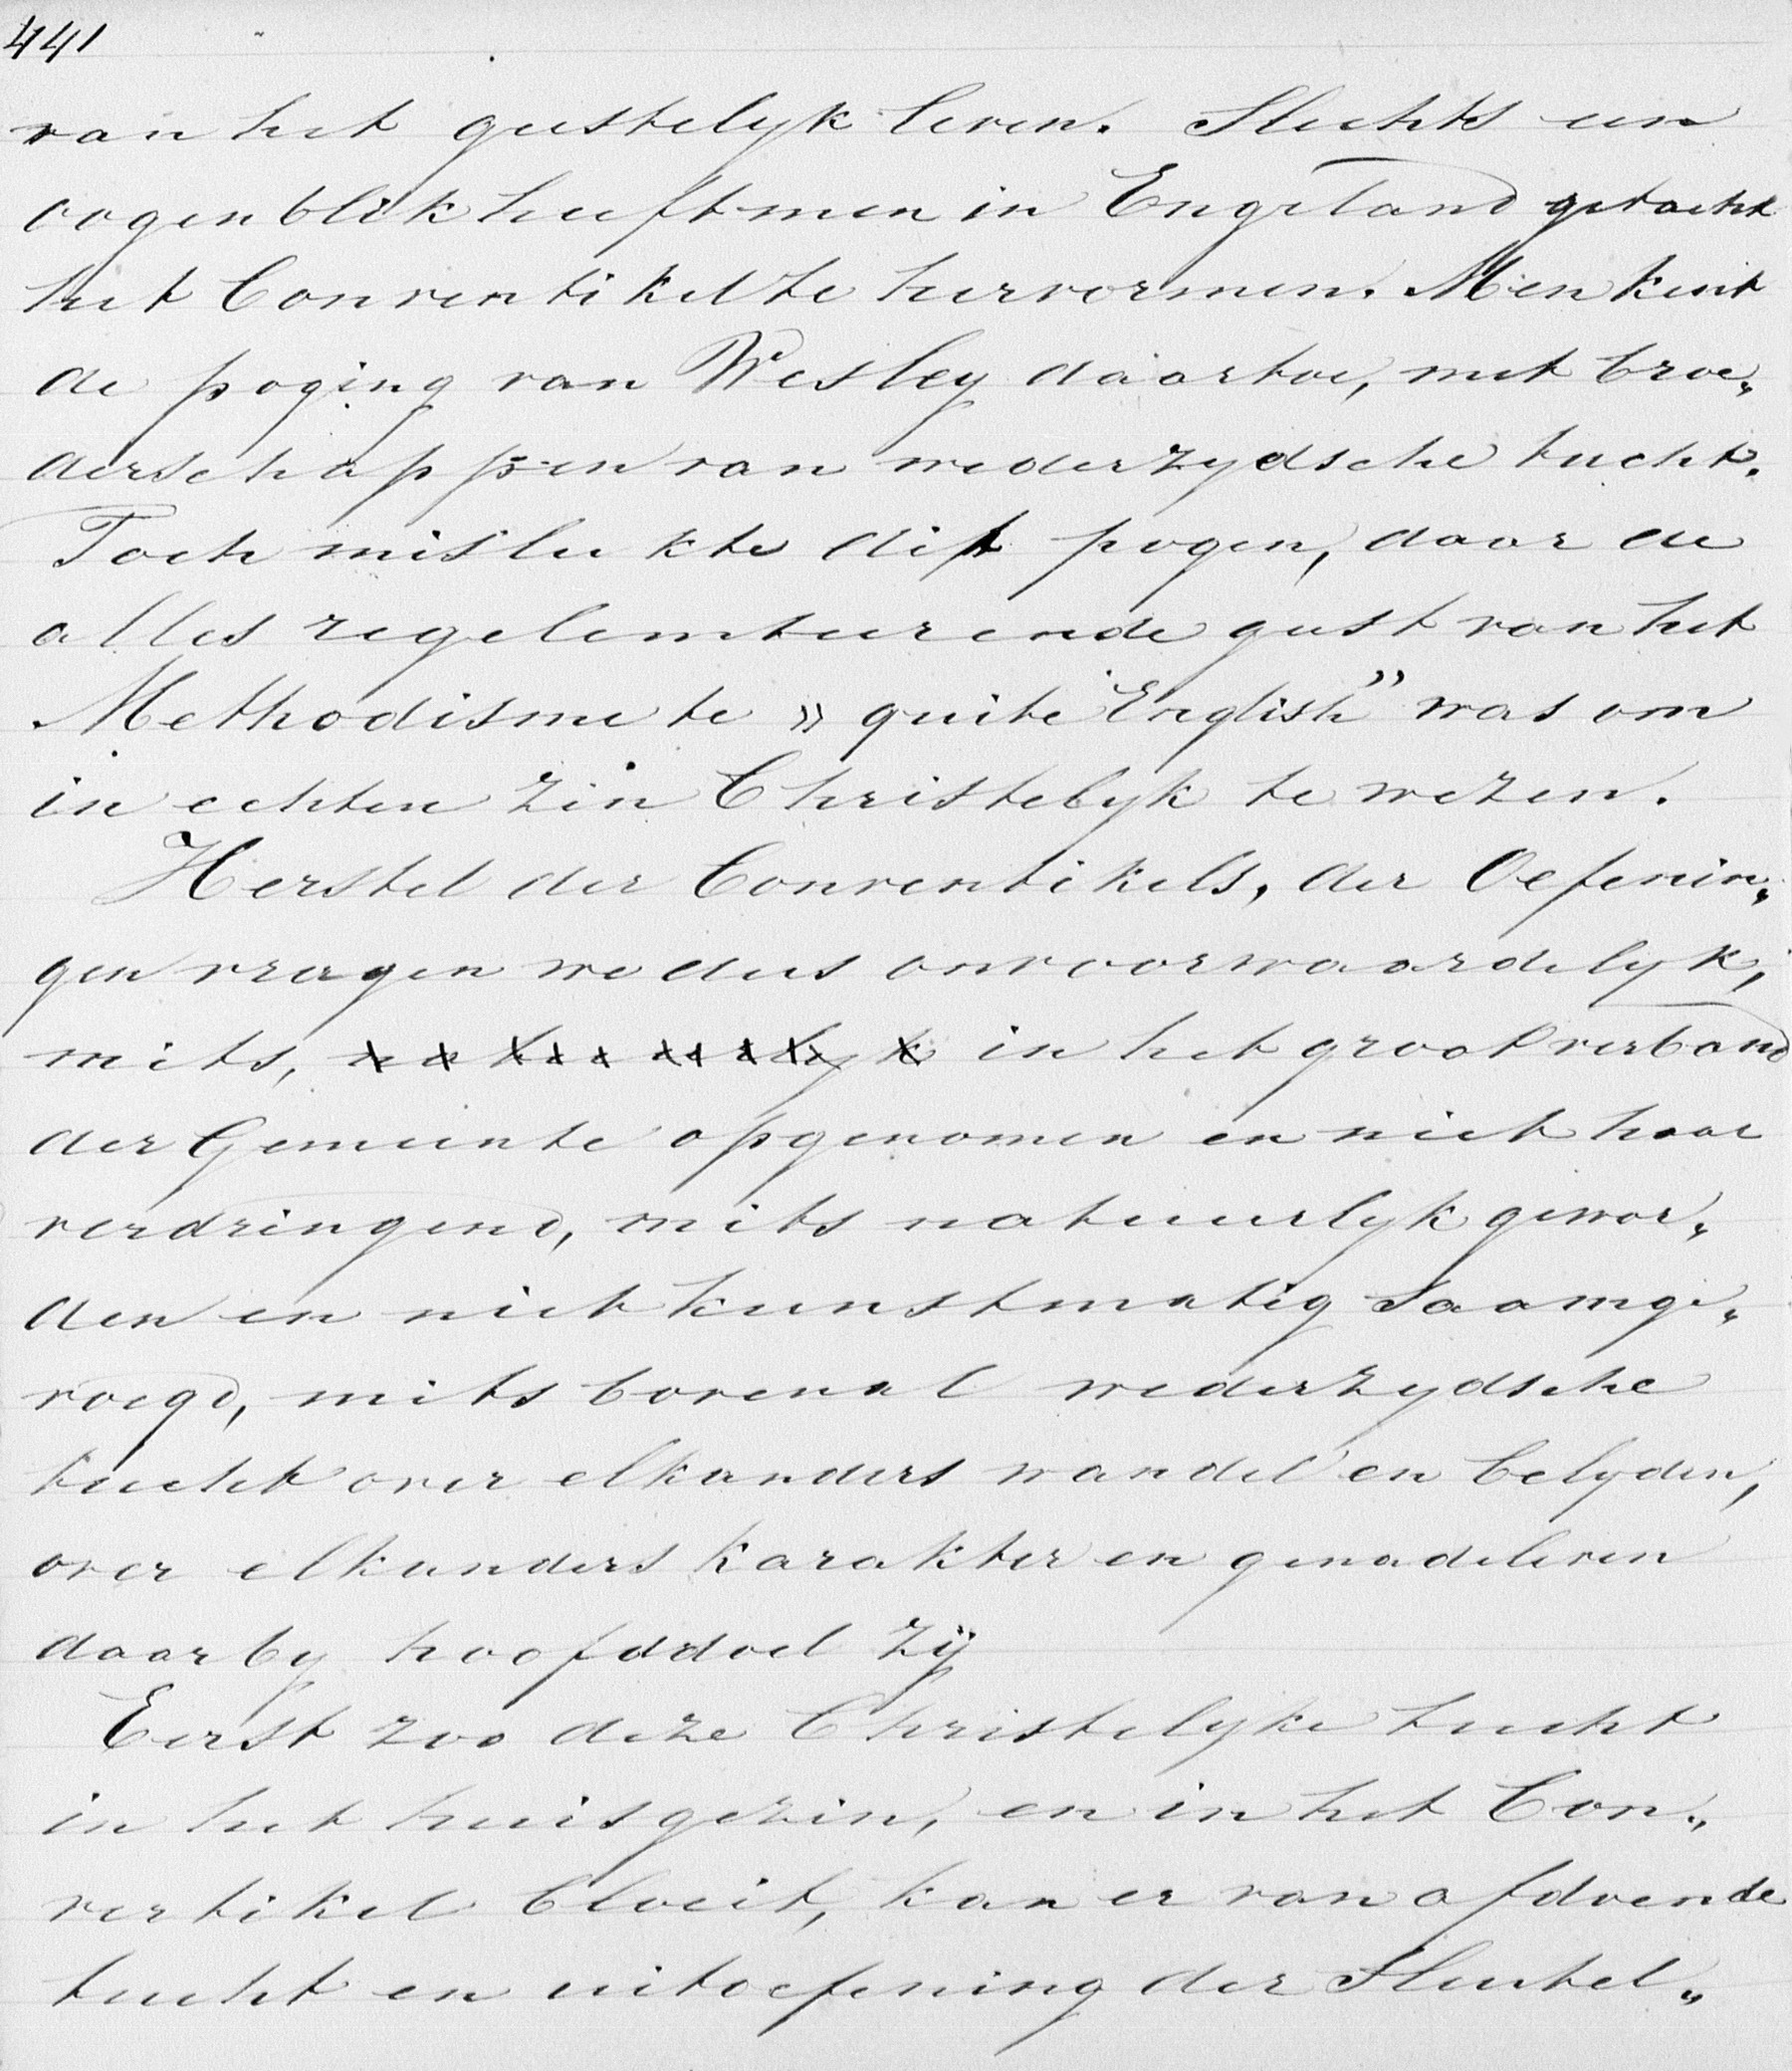 441
van het geestelyk leven. Slechts een
oogenblik heeft men in Engeland getracht
het Conventikel te hervormen. Men kent
de poging van Wesley daartoe, met broe„
derschappen van wederzydsche tucht.
Toch mislukte dit pogen, daar de
alles regelementeerende geest van het
Methodisme te „quite English” was om
in echten zin Christelyk te wezen.
Herstel der Conventikels, der Oefenin„
gen vragen we dus onvoorwaardelyk,
mits, in het groot verband
der Gemeente opgenomen en niet haar
verdringend, mits natuurlyk gewor„
den en niet kunstmatig saamge„
voegd, mits bovenal wederzydsche
tucht over elkanders wandel en belyden,
over elkanders karakter en genadeleven
daarby hoofddoel zÿ
Eerst zoo deze Christelyke tucht
in het huisgezin, en in het Con„
ventikel bloeit, kan er van afdoende
tucht en uitoefening der Sleutel„